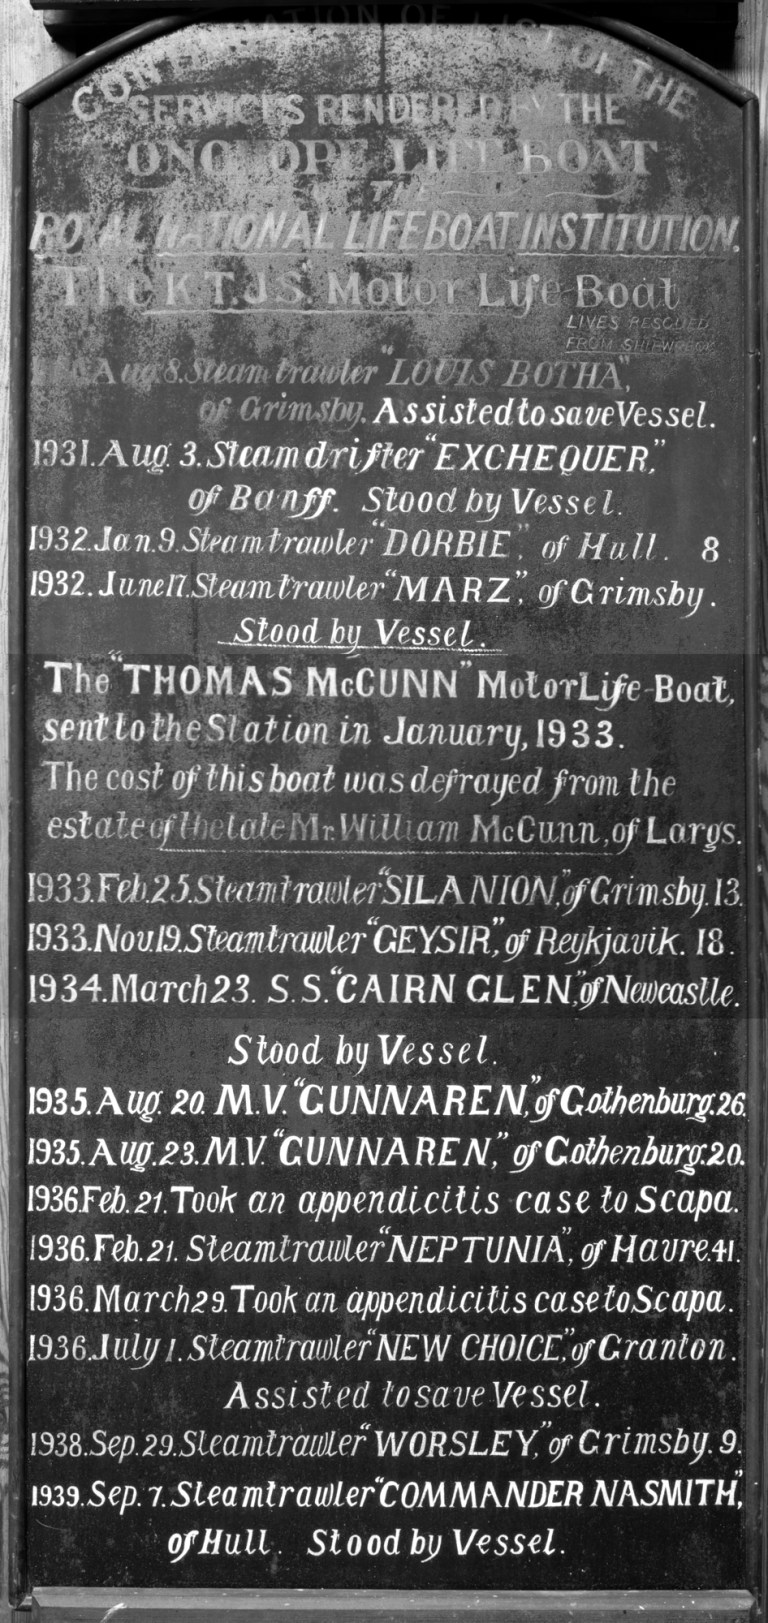 CONTINUATION OF LIST OF THE
SERVICES RENDERED BY THE
LIFE BOAT
OF THE
ROYAL NATIONAL LIFEBOAT INSTITUTION.
The K.T.J.S. Motor Life-Boat
LIVES RESCUED
FROM SHIPWRECK
Aug. 8. Steam trawler "LOUIS BOTHA",
of Grimsby. Assisted to save Vessel.
1931. Aug. 3. Steam drifter "EXCHEQUER,"
of Banff. Stood by Vessel.
1932. Jan. 9. Steam trawler "DORBIE", of Hull. 8
1932. June 17. Steam trawler "MARZ", of Grimsby.
Stood by Vessel.
The "THOMAS McCUNN" Motor Life-Boat,
sent to the Station in January, 1933.
The cost of this boat was defrayed from the
estate of the late Mr. William McCunn, of Largs.
1933. Feb. 25. Steam trawler "SILANION," of Grimsby. 13.
1933. Nov. 19. Steam trawler "GEYSIR," of Reykjavik. 18.
1934. March 23. S.S. "CAIRN GLEN," of Newcastle.
Stood by Vessel.
1935. Aug. 20. M.V. "GUNNAREN," of Gothenburg. 26.
1935. Aug. 23. M.V. "GUNNAREN," of Gothenburg. 20.
1936. Feb. 21. Took an appendicitis case to Scapa.
1936. Feb. 21. Steam trawler "NEPTUNIA", of Havre. 41.
1936. March 29. Took an appendicitis case to Scapa.
1936. July 1. Steam trawler "NEW CHOICE," of Granton.
Assisted to save Vessel.
1938. Sep. 29. Steam trawler "WORSLEY," of Grimsby. 9.
1939. Sep. 7. Steam trawler "COMMANDER NASMITH",
of Hull. Stood by Vessel.